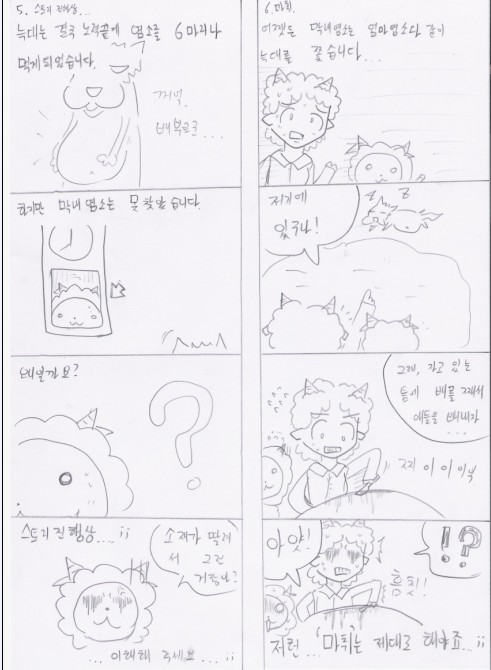 5. 스토리 진행상...
늑대는 결국 노력끝에 염소를 6마리나
먹게 되었습니다.
꺼억.
배부르군...
하지만 막내 염소는 못 찾았습니다.
왜일까요?
스토리 진행상... ;;
소재가 딸려
서 그런
거겠냐?
... 이해해 주세요... ;;
6. 마취.
어쨋든 막내염소는 엄마염소와 같이
늑대를 찾습니다...
저기에
있구나!
Z Z
그래, 자고 있는
동에 배를 갈라서
애들을 빼내자
...
지 이 이 이익
아얏!
흠칫!!
!?
저런... 마취는 제대로 해야죠...;;